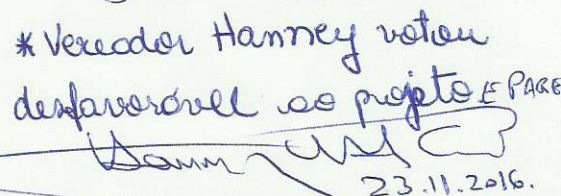 * Vereador Hanney votou
desfavorável ao projeto E PARE
23.11.2016.